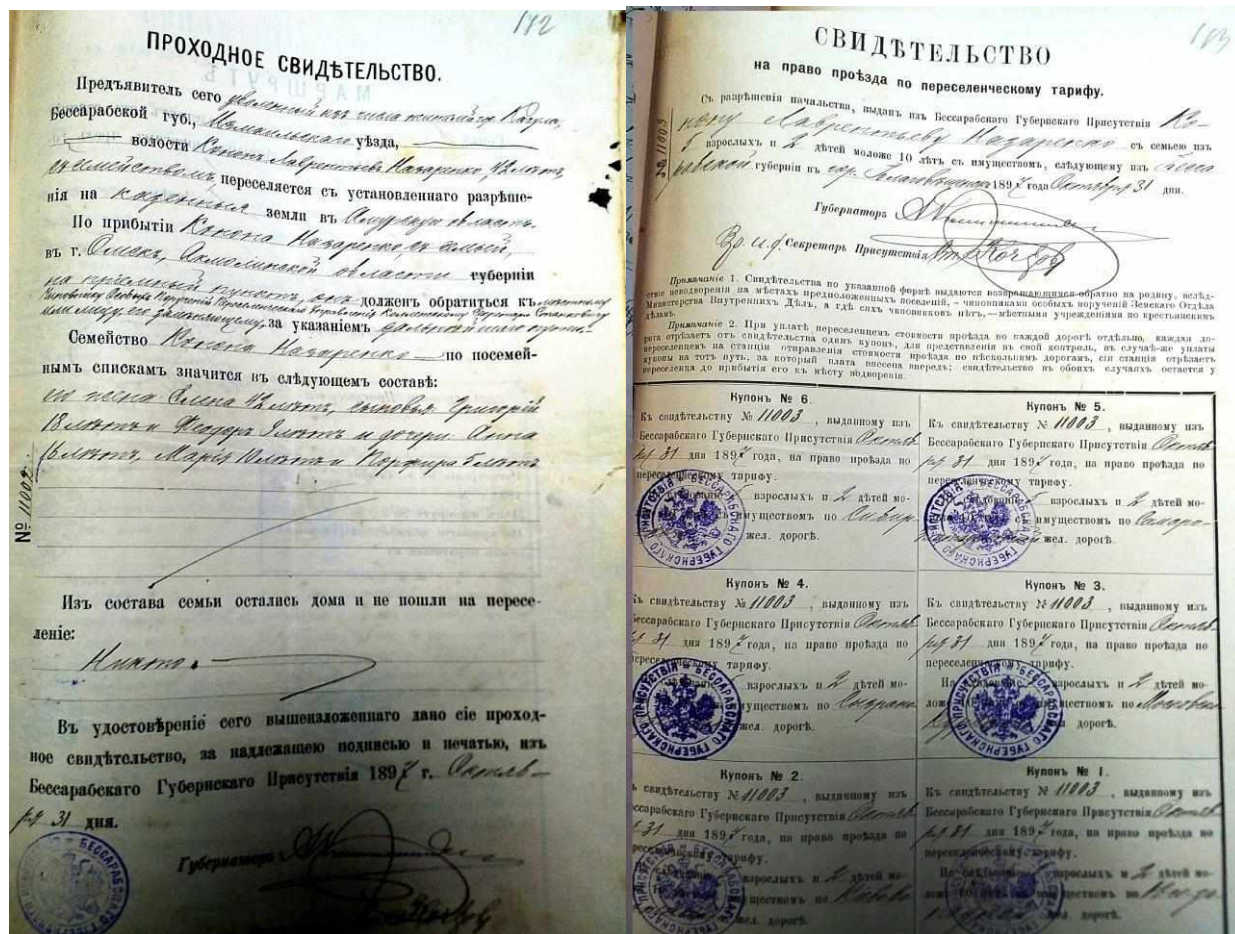 172
ПРОХОДНОЕ СВИДѢТЕЛЬСТВО.
Предъявитель сего уволенный изъ числа жителей гр. Кагула,
Бессарабской губ., Измаильскаго уѣзда,
волости Кононъ Лаврентьевъ Назаренко, 42 лѣтъ,
съ семействомъ, переселяется съ установленнаго разрѣше-
нія на казенныя земли въ Амурскую область.
По прибытіи Конона Назаренко, съ семьей,
въ г. Омскъ, Акмолинской области губерніи
на пріемный пунктъ, онъ долженъ обратиться къ мѣстному
Чиновнику Особыхъ Порученій Переселенческаго Управленія Коллежскому Секретарю
или лицу, его замѣняющему, за указаніемъ дальнѣйшаго пути.
Семейство Конона Назаренко по посемей-
нымъ спискамъ значится въ слѣдующемъ составѣ:
его жена Елена 42 лѣтъ, сыновья: Григорій
18 лѣтъ и Феодоръ 9 лѣтъ и дочери: Анна
16 лѣтъ, Марія 10 лѣтъ и Порфира 5 лѣтъ
№ 11002
Изъ состава семьи остались дома и не пошли на пересе-
леніе:
Никто.
Въ удостовѣреніе сего вышеизложеннаго дано сіе проход-
ное свидѣтельство, за надлежащею подписью и печатью, изъ
Бессарабскаго Губернскаго Присутствія 1897 г. Октяб-
ря 31 дня.
Губернаторъ
183
СВИДѢТЕЛЬСТВО
на право проѣзда по переселенческому тарифу.
Съ разрѣшенія начальства, выданъ изъ Бессарабскаго Губернскаго Присутствія Ко-
нону Лаврентьеву Назаренко съ семьею изъ
5 взрослыхъ и 2 дѣтей моложе 10 лѣтъ съ имуществомъ, слѣдующему изъ Бесса
рабской губерніи въ гор. Благовѣщенскъ 1897 года Октября 31 дня.
№ 11003
Губернаторъ
Вр. и. д. Секретарь Присутствія
Примѣчаніе 1. Свидѣтельства по указанной формѣ выдаются возвращающимся обратно на родину, вслѣд-
ствіе неводворенія на мѣстахъ предположенныхъ поселеній, – чиновниками особыхъ порученій Земскаго Отдѣла
Министерства Внутреннихъ Дѣлъ, а гдѣ сихъ чиновниковъ нѣтъ, – мѣстными учрежденіями по крестьянскимъ
дѣламъ.
Примѣчаніе 2. При уплатѣ переселенцемъ стоимости проѣзда по каждой дорогѣ отдѣльно, каждая до-
рога отрѣзаетъ отъ свидѣтельства одинъ купонъ, для представленія въ свой контроль, въ случаѣ-же уплаты
переселенцемъ на станціи отправленія стоимости проѣзда по нѣсколькимъ дорогамъ, сія станція отрѣзаетъ
купоны на тотъ путь, за который плата внесена впередъ; свидѣтельство въ обоихъ случаяхъ остается у
переселенца до прибытія его къ мѣсту водворенія.
Купонъ № 6.
Къ свидѣтельству № 11003, выданному изъ
Бессарабскаго Губернскаго Присутствія Октяб-
ря 31 дня 1897 года, на право проѣзда по
переселенческому тарифу.
взрослыхъ и 2 дѣтей мо-
съ имуществомъ по Сибир-
жел. дорогѣ.
Купонъ № 5.
Къ свидѣтельству № 11003, выданному изъ
Бессарабскаго Губернскаго Присутствія Октяб-
ря 31 дня 1897 года, на право проѣзда по
переселенческому тарифу.
взрослыхъ и 2 дѣтей мо-
съ имуществомъ по Самаро-
жел. дорогѣ.
Купонъ № 4.
Къ свидѣтельству № 11003, выданному изъ
Бессарабскаго Губернскаго Присутствія Октяб-
ря 31 дня 1897 года, на право проѣзда по
переселенческому тарифу.
взрослыхъ и 2 дѣтей мо-
имуществомъ по Сызрано
жел. дорогѣ.
Купонъ № 3.
Къ свидѣтельству № 11003, выданному изъ
Бессарабскаго Губернскаго Присутствія Октяб-
ря 31 дня 1897 года, на право проѣзда по
переселенческому тарифу.
На слѣдованіе взрослыхъ и 2 дѣтей мо-
ложе имуществомъ по Московско
дорогѣ.
Купонъ № 2.
Къ свидѣтельству № 11003, выданному изъ
Бессарабскаго Губернскаго Присутствія Октяб-
ря 31 дня 1897 года, на право проѣзда по
переселенческому тарифу.
взрослыхъ и 2 дѣтей мо-
имуществомъ по Кіево
жел. дорогѣ.
Купонъ № 1.
Къ свидѣтельству № 11003, выданному изъ
Бессарабскаго Губернскаго Присутствія Октяб-
ря 31 дня 1897 года, на право проѣзда по
переселенческому тарифу.
На слѣдованіе взрослыхъ и 2 дѣтей мо-
ложе имуществомъ по Юго-За
жел. дорогѣ.